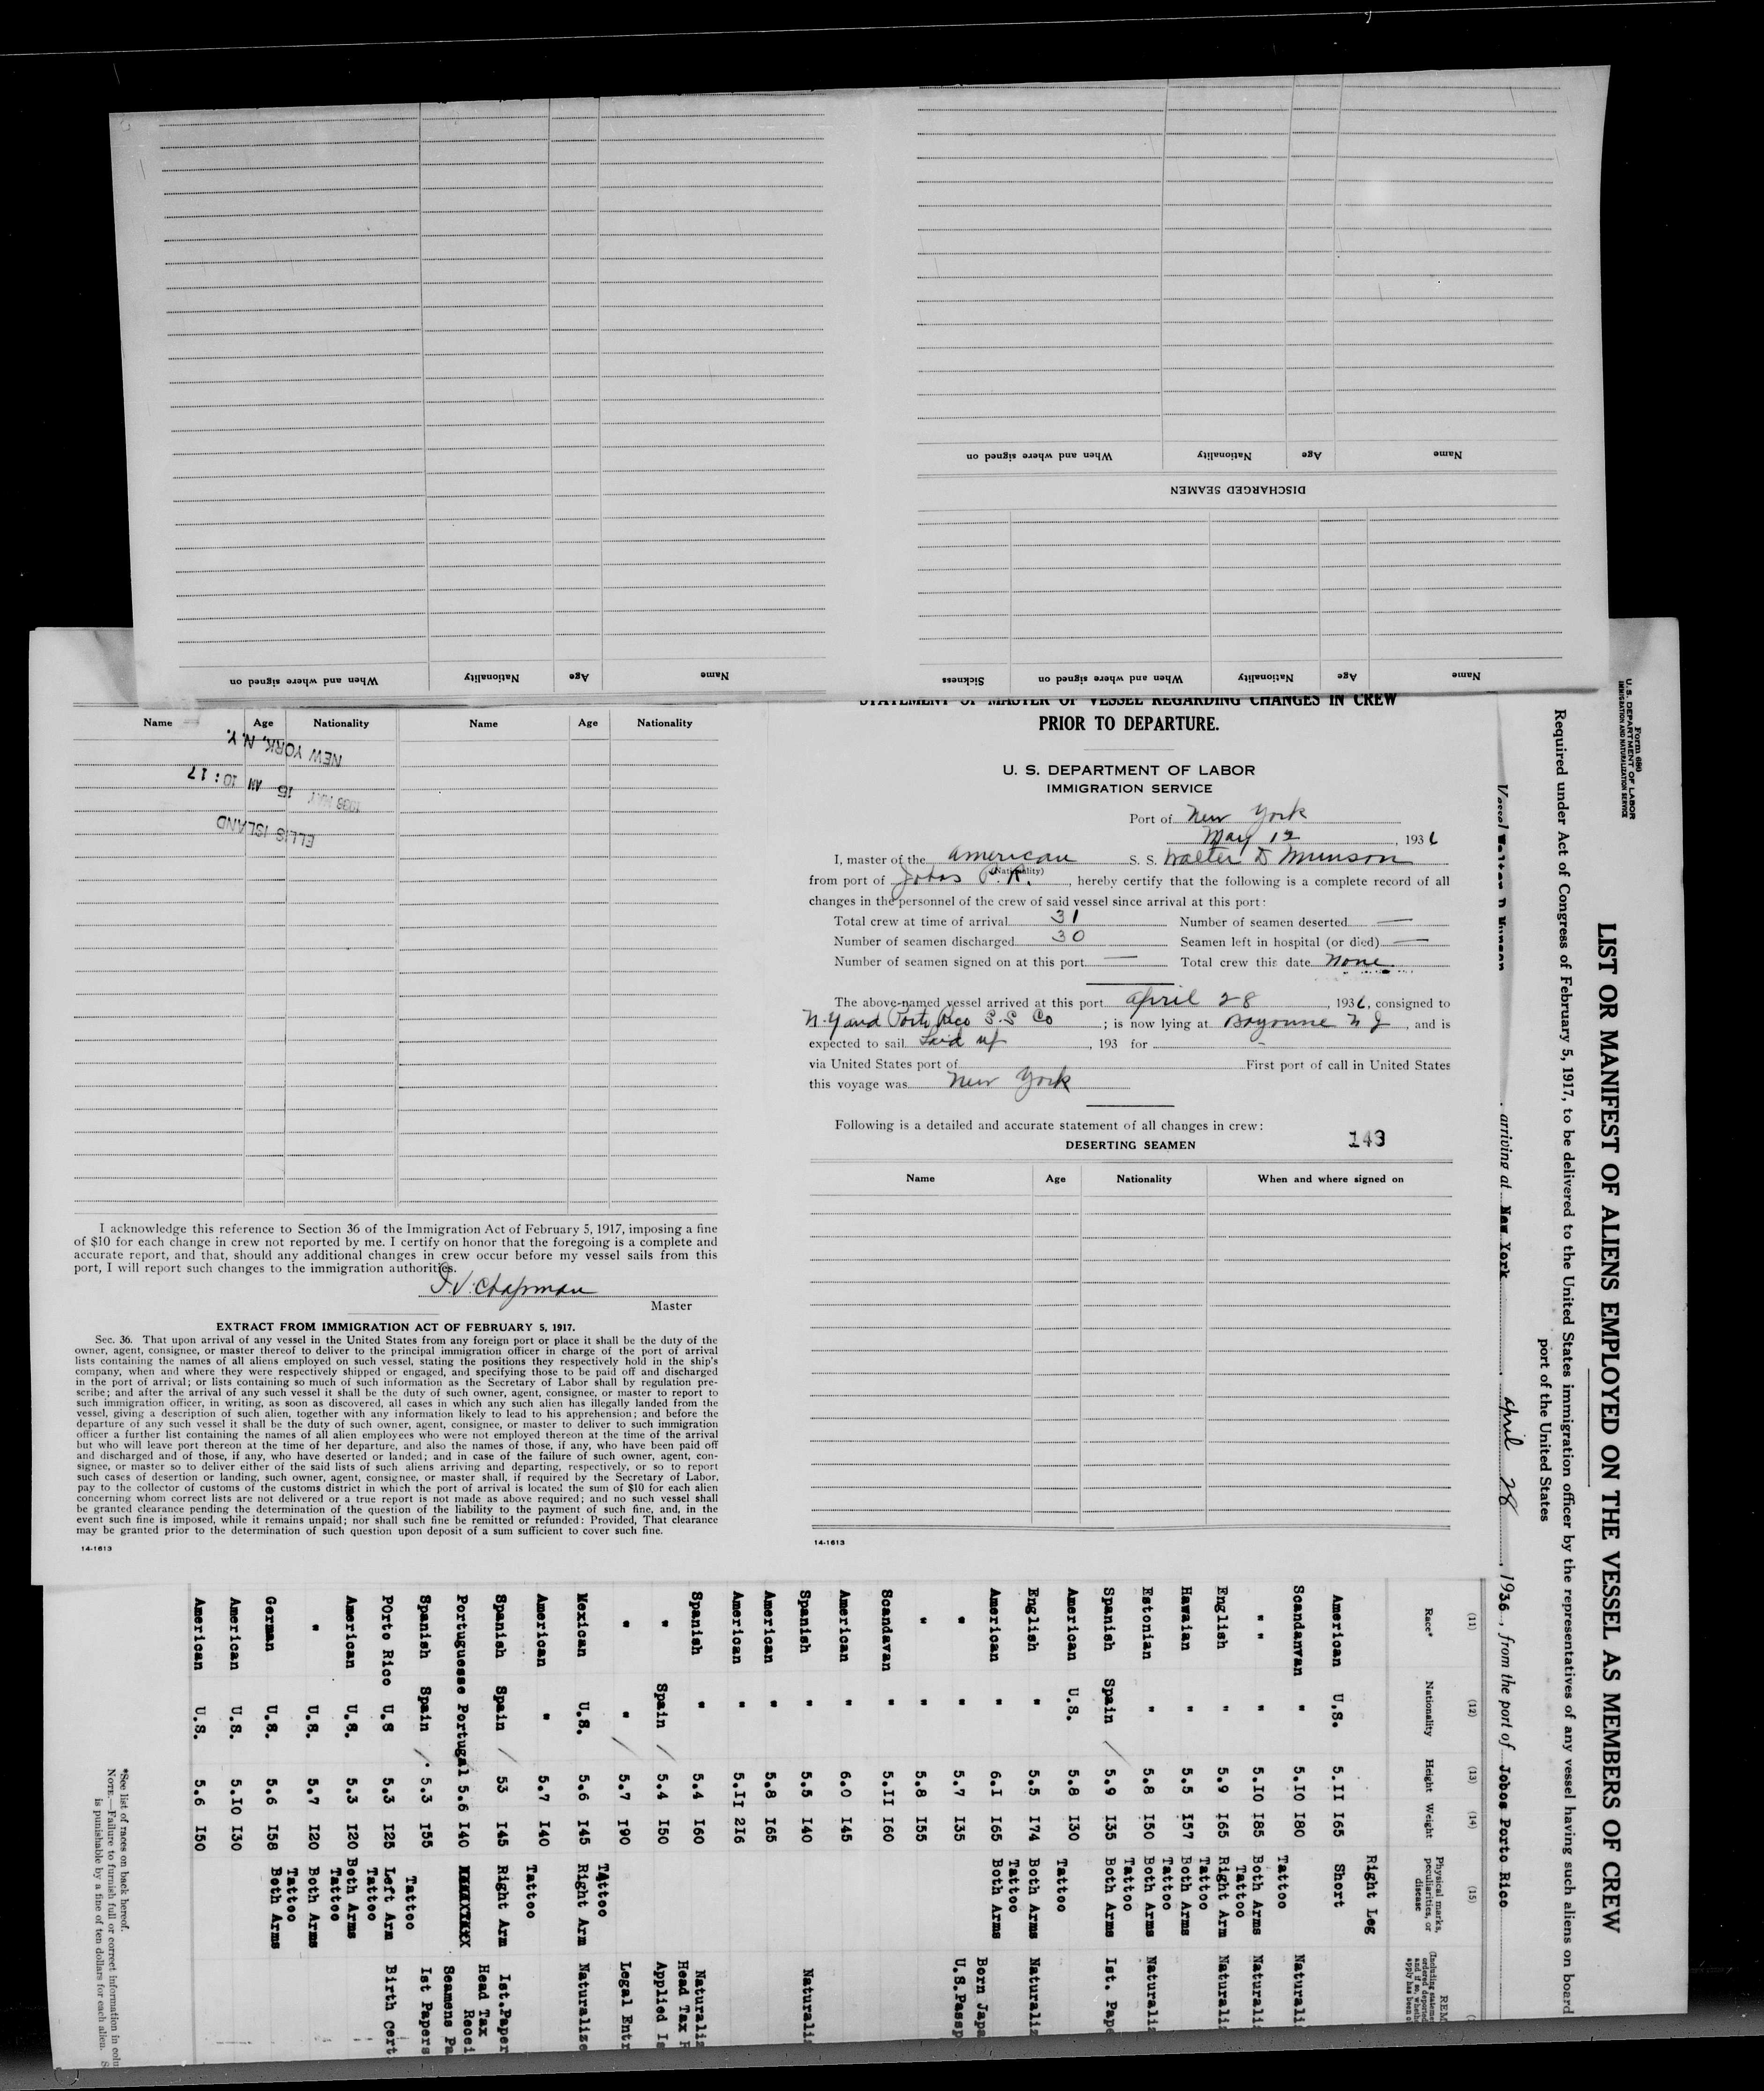 When and where signed on Nationality Age Name
DISCHARGED SEAMEN
Name Age Nationality When and where signed on Sickness
Name Age Nationality When and where signed on
Name Age Nationality Name Age Nationality
ELLIS ISLAND
15 AM 10:17
NEW YORK, N.Y.
I acknowledge this reference to Section 36 of the Immigration Act of February 5, 1917, imposing a fine
of $10 for each change in crew not reported by me. I certify on honor that the foregoing is a complete and
accurate report, and that, should any additional changes in crew occur before my vessel sails from this
port, I will report such changes to the immigration authorities.
I.V. Chapman
Master
EXTRACT FROM IMMIGRATION ACT OF FEBRUARY 5, 1917.
Sec. 36. That upon arrival of any vessel in the United States from any foreign port or place it shall be the duty of the
owner, agent, consignee, or master thereof to deliver to the principal immigration officer in charge of the port of arrival
lists containing the names of all aliens employed on such vessel, stating the positions they respectively hold in the ship's
company, when and where they were respectively shipped or engaged, and specifying those to be paid off and discharged
in the port of arrival; or lists containing so much of such information as the Secretary of Labor shall by regulation pre-
scribe; and after the arrival of any such vessel it shall be the duty of such owner, agent, consignee, or master to report to
such immigration officer, in writing, as soon as discovered, all cases in which any such alien has illegally landed from the
vessel, giving a description of such alien, together with any information likely to lead to his apprehension; and before the
departure of any such vessel it shall be the duty of such owner, agent, consignee, or master to deliver to such immigration
officer a further list containing the names of all alien employees who were not employed thereon at the time of the arrival
but who will leave port thereon at the time of her departure, and also the names of those, if any, who have been paid off
and discharged and of those, if any, who have deserted or landed; and in case of the failure of such owner, agent, con-
signee, or master so to deliver either of the said lists of such aliens arriving and departing, respectively, or so to report
such cases of desertion or landing, such owner, agent, consignee, or master shall, if required by the Secretary of Labor,
pay to the collector of customs of the customs district in which the port of arrival is located the sum of $10 for each alien
concerning whom correct lists are not delivered or a true report is not made as above required; and no such vessel shall
be granted clearance pending the determination of the question of the liability to the payment of such fine, and, in the
event such fine is imposed, while it remains unpaid; nor shall such fine be remitted or refunded: Provided, That clearance
may be granted prior to the determination of such question upon deposit of a sum sufficient to cover such fine.
14-1613
STATEMENT OF MASTER OF VESSEL REGARDING CHANGES IN CREW
PRIOR TO DEPARTURE.
U. S. DEPARTMENT OF LABOR
IMMIGRATION SERVICE
Port of New York
May 12, 1936
I, master of the American S. S. Walter D Munson
(Nationality)
from port of Jobos P.R., hereby certify that the following is a complete record of all
changes in the personnel of the crew of said vessel since arrival at this port:
Total crew at time of arrival 31 Number of seamen deserted —
Number of seamen discharged 30 Seamen left in hospital (or died) —
Number of seamen signed on at this port — Total crew this date none
The above-named vessel arrived at this port April 28, 1936, consigned to
N.Y and Porto Rico S.S Co; is now lying at Bayonne N J, and is
expected to sail Laid up, 193 for -
via United States port of First port of call in United States
this voyage was New York
Following is a detailed and accurate statement of all changes in crew:
DESERTING SEAMEN 143
Name Age Nationality When and where signed on
14-1613
Form 680
U. S. DEPARTMENT OF LABOR
IMMIGRATION AND NATURALIZATION SERVICE
LIST OR MANIFEST OF ALIENS EMPLOYED ON THE VESSEL AS MEMBERS OF CREW
Required under Act of Congress of February 5, 1917, to be delivered to the United States immigration officer by the representatives of any vessel having such aliens on board
port of the United States
Vessel Walter D Munson, arriving at New York, April 28, 1936, from the port of Jobos Porto Rico
(11) (12) (13) (14) (15)
Race* Nationality Height Weight Physical marks, peculiarities, or disease
Right Leg
American U.S. 5.II I65 Short
Scandanvan " 5.IO I80 Naturali
Tattoo
" " " 5.IO I85 Both Arms Naturali
Tattoo
English " 5.9 I65 Right Arm Naturali
Tattoo
Hawaian " 5.5 I57 Both Arms
Tattoo
Estonian " 5.8 I50 Both Arms Naturali
Tattoo
Spanish Spain / 5.9 I35 Both Arms Ist. Pape
American U.S. 5.8 I30 Tattoo
English " 5.5 I74 Both Arms Naturaliz
Tattoo
American " 6.I I65 Both Arms Born Japa
" " 5.7 I35 U.S.Passp
" " 5.8 I55
Scandavan " 5.II I60
American " 6.0 I45
Spanish " 5.5 I40 Naturali
American " 5.8 I65
American " 5.II 2I6
Spanish " 5.4 I60 Naturaliz
Head Tax
" Spain / 5.4 I50 Applied Is
" " / 5.7 I90 Legal Entr
Tattoo
Mexican U.S. 5.6 I45 Right Arm Naturalize
American " 5.7 I40 Tattoo
Spanish Spain / 53 I45 Right Arm Ist.Paper
Head Tax Recei
Portuguesse Portugal 5.6 I40 Seamens Pa
Spanish Spain / 5.3 I55 Ist Papers
Tattoo
POrto Rico U.S 5.3 I25 Left Arm Birth cert
Tattoo
American U.S. 5.3 I20 Both Arms
Tattoo
" U.S. 5.7 I20 Both Arms
Tattoo
German U.S. 5.6 I58 Both Arms
American U.S. 5.IO I30
American U.S. 5.6 I50
*See list of races on back hereof.
NOTE.—Failure to furnish full or correct information in colu
is punishable by a fine of ten dollars for each alien.